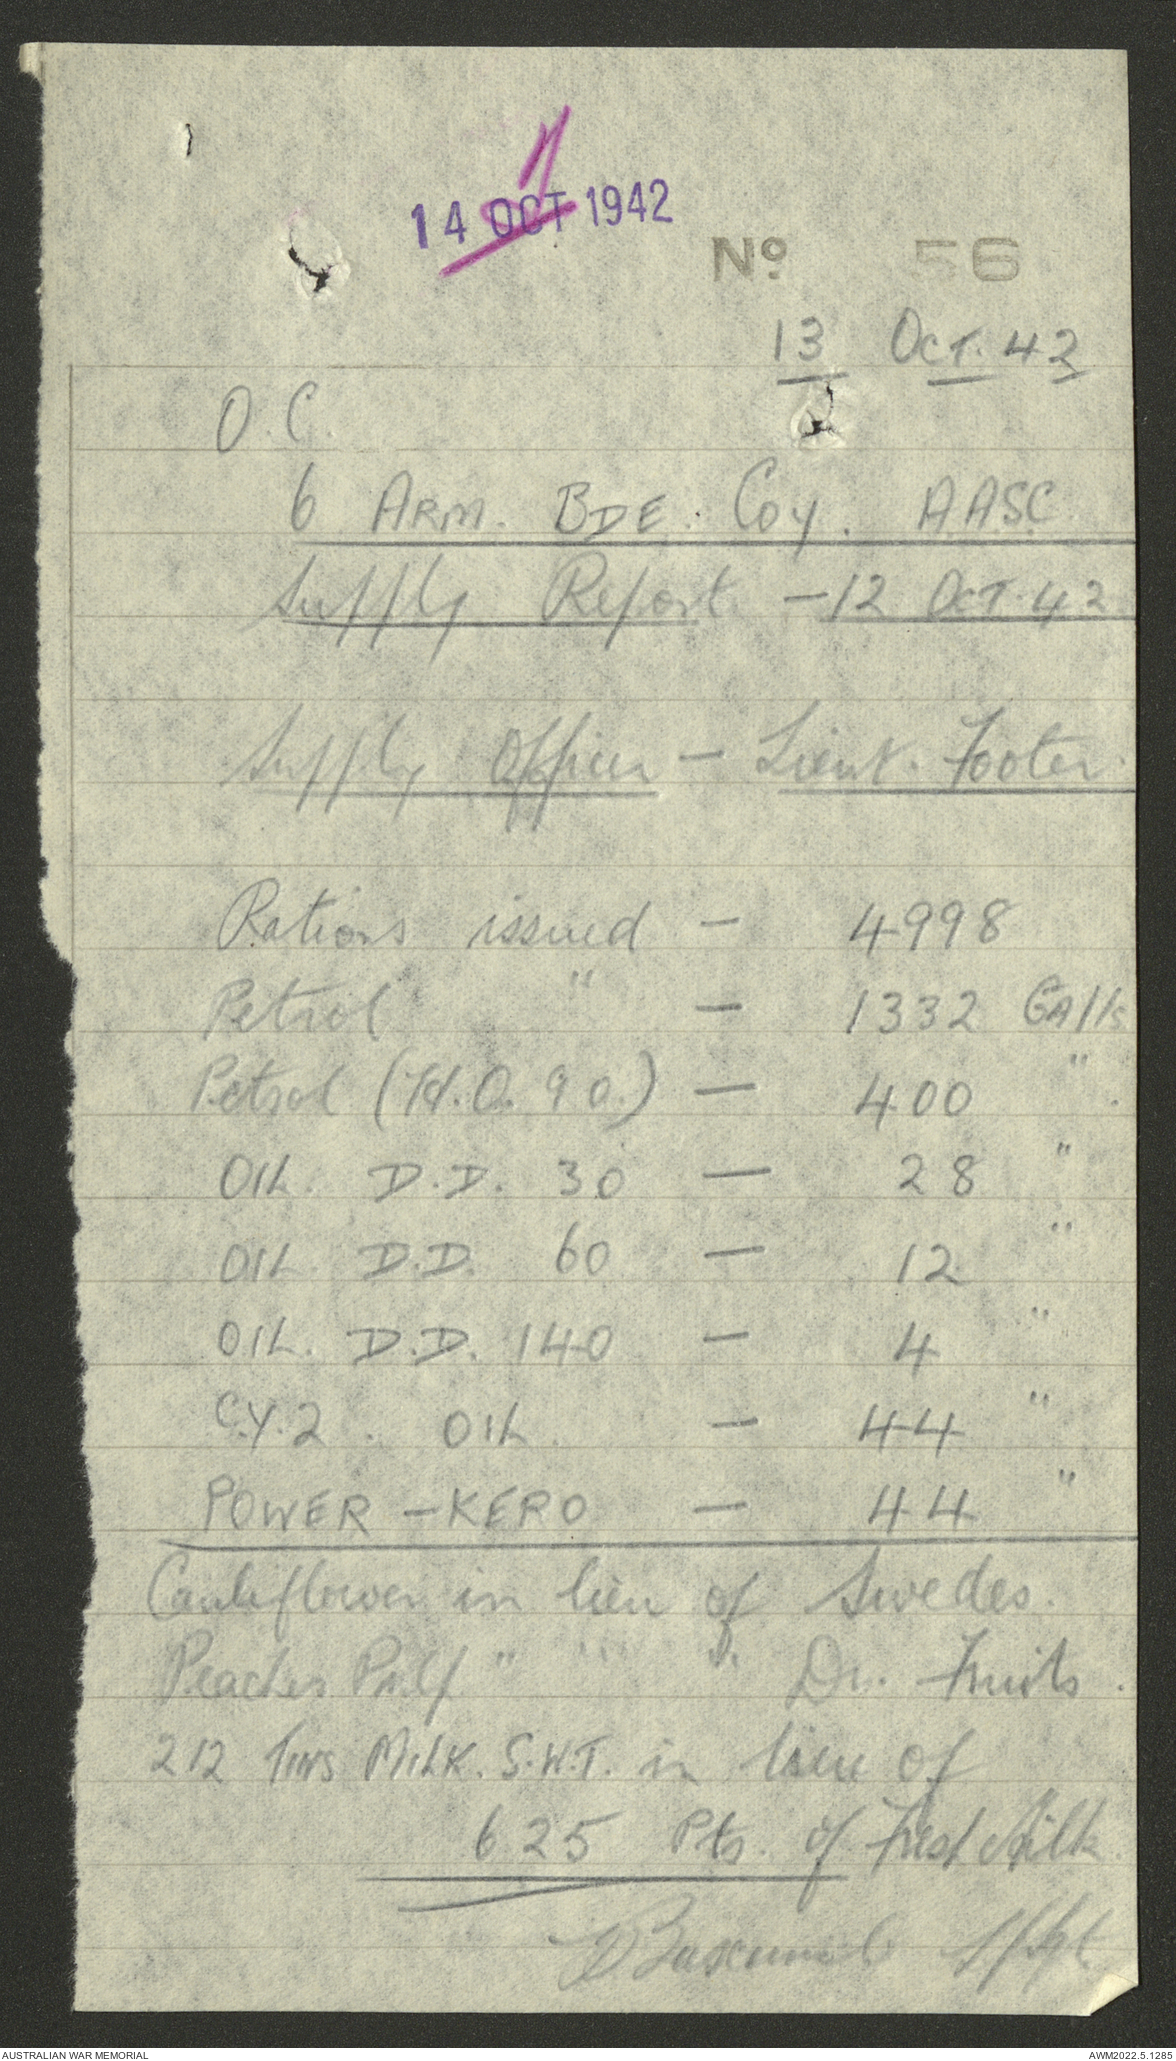 14 OCT 1942
No 56
13 Oct. 42
O.C.
6 ARM. BDE. Coy. AASC
Supply Report - 12 OCT. 42
Supply Officer - Lieut. Footer.
Rations issued - 4998
Petrol " - 1332 GAlls
Petrol (H.O. 90.) - 400 "
OIL. D.D. 30 - 28 "
OIL. D.D. 60 - 12 "
OIL. D.D. 140 - 4 "
C.Y.2. OIL - 44 "
POWER - KERO - 44 "
Cauliflower in lieu of Swedes.
Peaches Pulp " " " Dr. Fruits.
212 Tins MILK. S.W.T. in lieu of
625 Pts. of Fresh Milk.
S/Sgt
AUSTRALIAN WAR MEMORIAL
AWM2022.5.1285